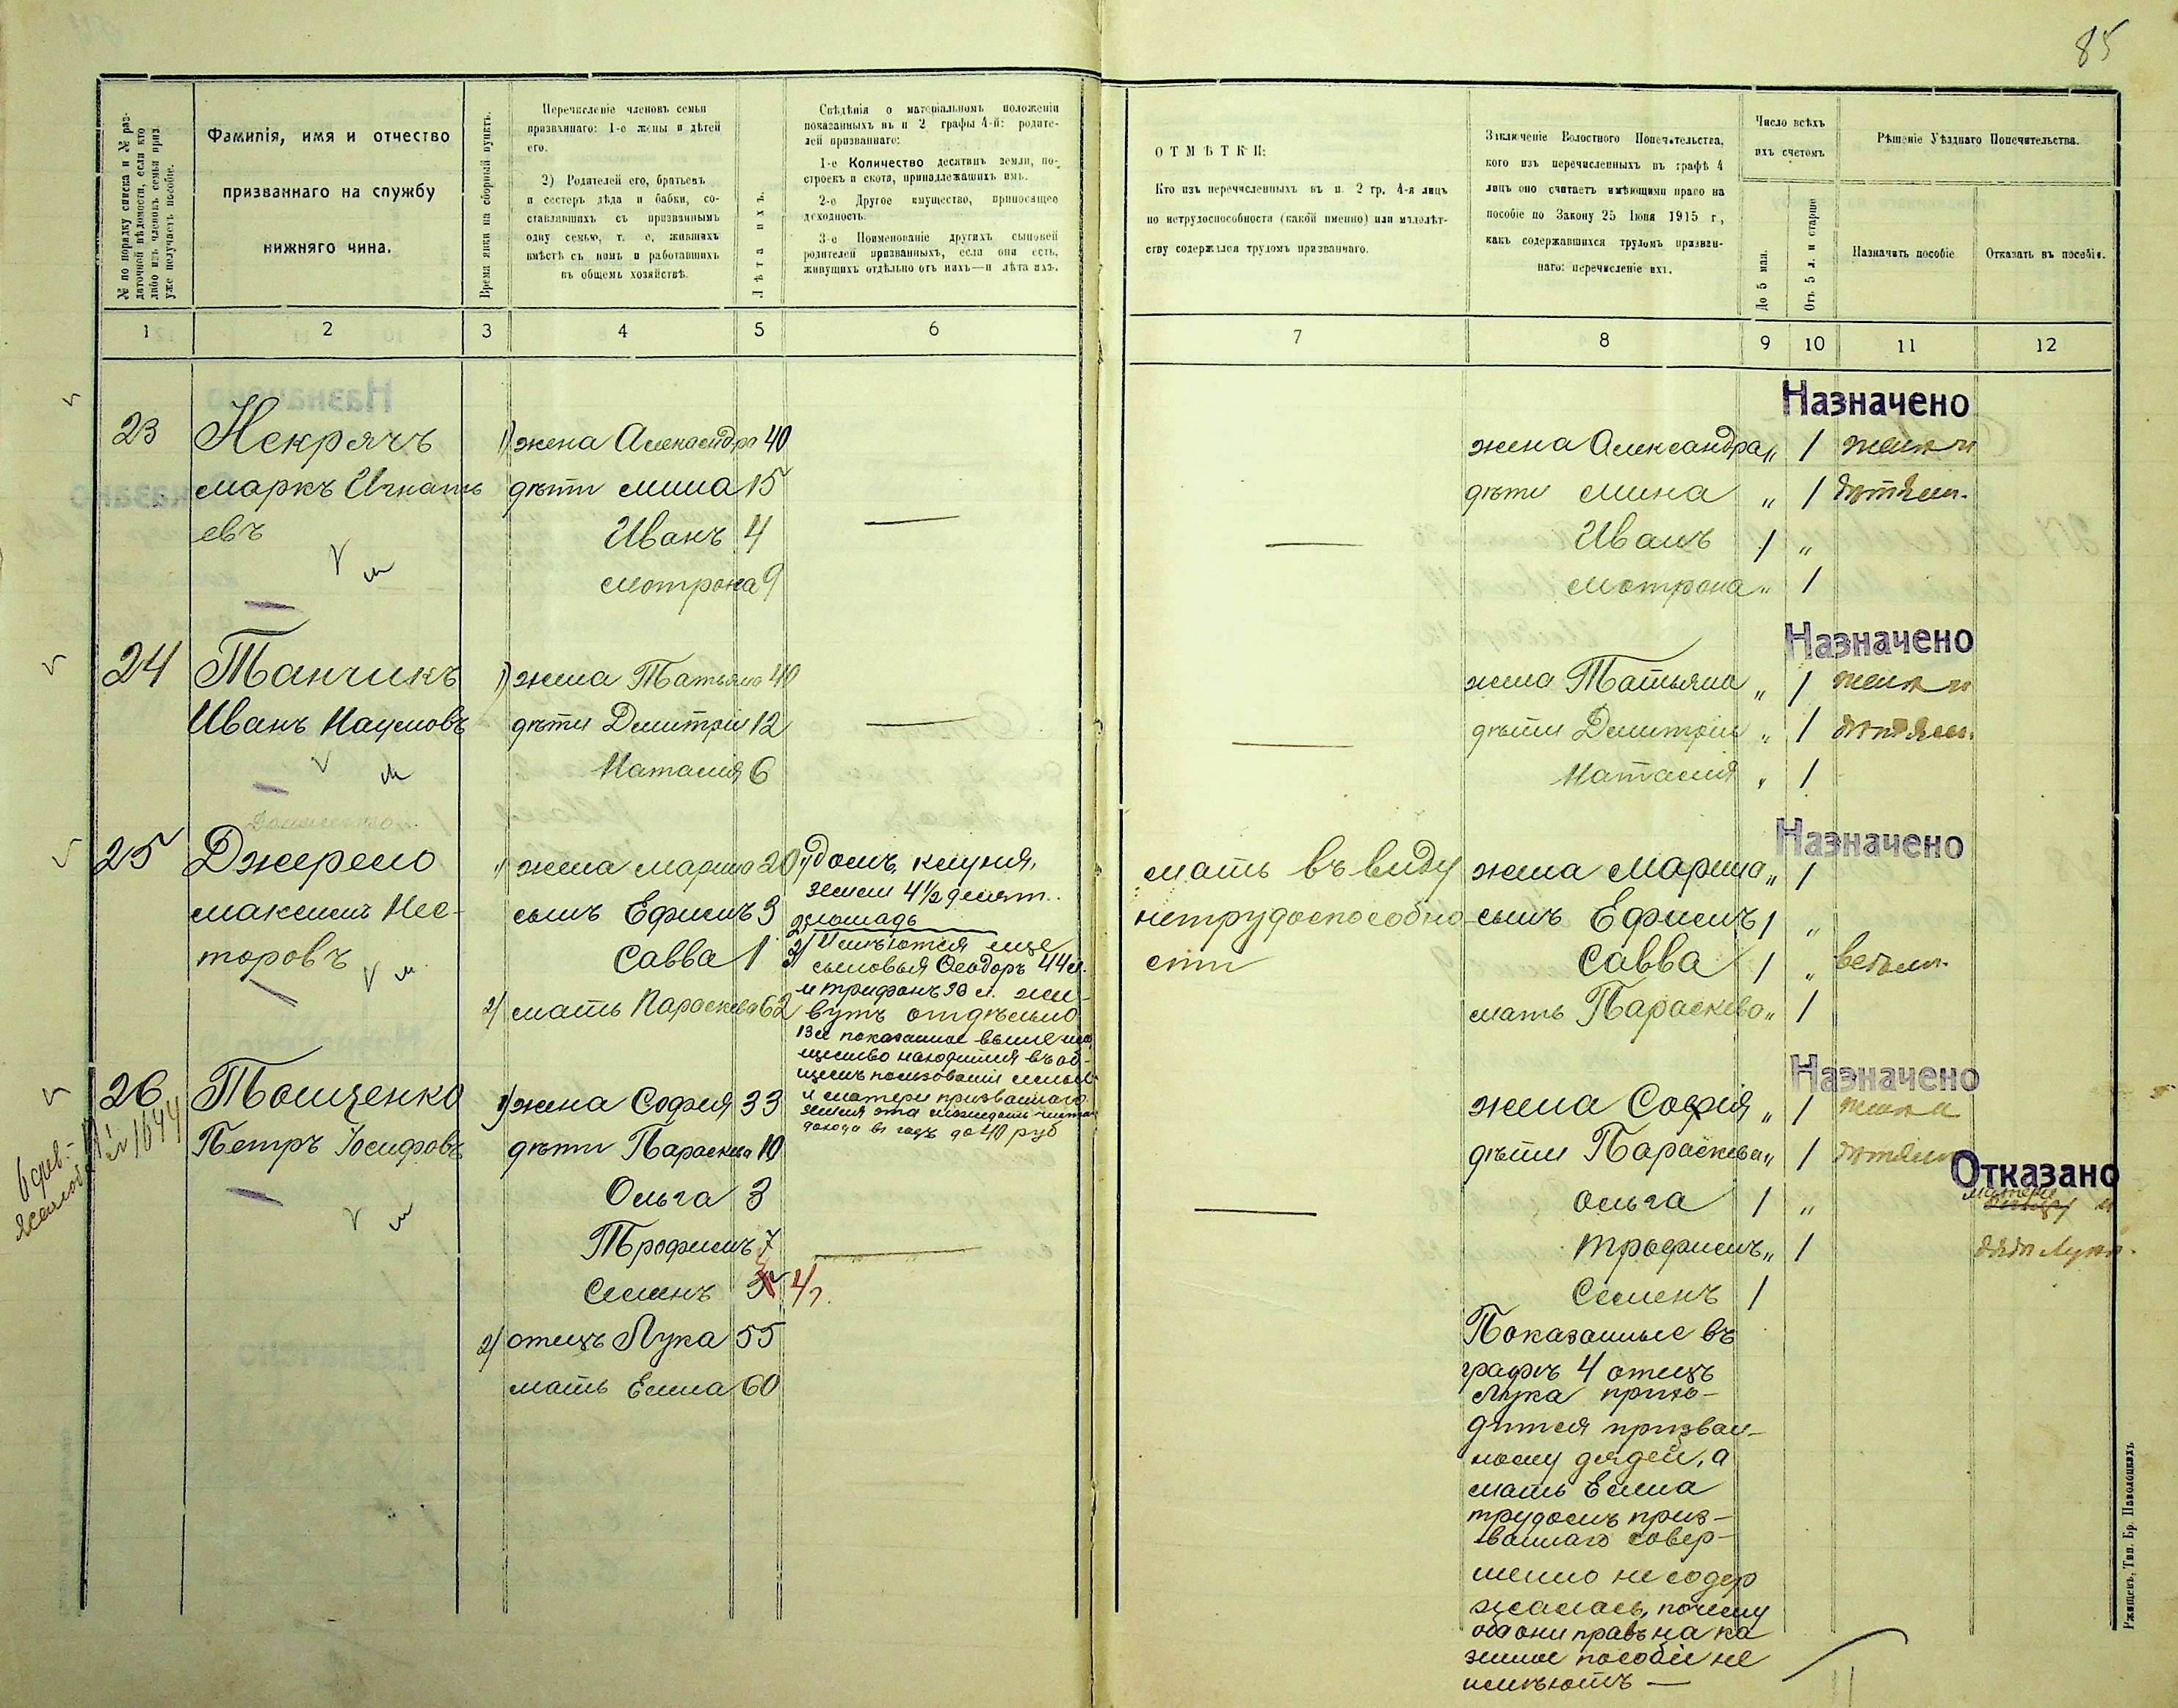 85
№ по порядку списка и № раз-
даточной вѣдомости, если кто
либо изъ членовъ семьи приз.
уже получаетъ пособіе.
Фамилія, имя и отчество
призваннаго на службу
нижняго чина.
Время явки на сборный пунктъ.
Перечисленіе членовъ семьи
призваннаго: 1-е жены и дѣтей
его.
2) Родителей его, братьевъ
и сестеръ дѣда и бабки, со-
ставлявшихъ съ призваннымъ
одну семью, т. е, жившихъ
вмѣстѣ съ нимъ и работавшихъ
въ общемъ хозяйствѣ.
Лѣта ихъ.
Свѣдѣнія о матеріальномъ положеніи
показанныхъ въ п 2 графы 4-й: родите-
лей призваннаго:
1-е Количество десятинъ земли, по-
строекъ и скота, принадлежащихъ имъ.
2-е Другое имущество, приносящее
доходность.
3-е Поименованіе другихъ сыновей
родителей призванныхъ, если они есть,
живущихъ отдѣльно отъ нихъ—и лѣта ихъ.
ОТМѢТКИ:
Кто изъ перечисленныхъ въ п. 2 гр. 4-я лицъ
по нетрудоспособности (какой именно) или малолѣт-
ству содержался трудомъ призваннаго.
Заключеніе Волостного Попечительства,
кого изъ перечисленныхъ въ графѣ 4
лицъ оно считаетъ имѣющими право на
пособіе по Закону 25 Іюня 1915 г.,
какъ содержавшихся трудомъ призван-
наго: перечисленіе ихъ.
Число всѣхъ
ихъ счетомъ
До 5 мая.
Отъ 5 л. и старше
Рѣшеніе Уѣзднаго Попечительства.
Назначить пособіе
Отказать въ пособіи.
1 2 3 4 5 6 7 8 9 10 11 12
Назначено
23 Некрячъ 1) жена Александра 40 жена Александра „ 1 женѣ и
маркъ Игнать дѣти мина 15 — дѣти мина „ 1 дѣтямъ.
евъ Иванъ 4 — Иванъ 1 „
мотрона 9 мотрона „ 1
Назначено
24 Танчикъ 1) жена Татьяна 40 жена Татьяна „ 1 женѣ и
Иванъ Наумовъ дѣти Дмитрій 12 — — дѣти Дмитрій „ 1 дѣтямъ.
Наталія 6 Наталія „ 1
Назначено
25 Джерело 1) жена марина 20 1) домъ, клуня, мать въ виду жена Марина „ 1
земли 4½ десят.
максимъ Нес- сынъ Ефимъ 3 2) лошадь нетрудоспособно- сынъ Ефимъ 1 „
торовъ Савва 1 3) Имѣются еще сти Савва 1 „ всѣмъ.
сыновья Ѳеодоръ 44 л.
и трифонъ 30 л. жи-
2) мать Параскева 62 вутъ отдѣльно мать Параскева „ 1
Все показанное выше иму
щество находится въ об-
щемъ пользованіи семьи
и матери призваннаго
земля эта
дохода въ годъ до 40 руб
Назначено
26 Тощенко 1) жена Софія 33 жена Софія „ 1 женѣ и
№ 1644
Петръ Іосифовъ дѣти Параскева 10 дѣти Параскева „ 1 дѣтямъ
Отказано
Ольга 3 — Ольга 1 „ матери и
Трофимъ 7 — трофимъ „ 1 дядѣ Лукѣ.
Семенъ 4 г. Семенъ 1
2) отецъ Лука 55
мать Елена 60
Показанные въ
графѣ 4 отецъ
Лука прихо-
дится призван-
ному дядей, а
мать Елена
трудомъ приз-
ваннаго совер-
шенно не содер
жалась, почему
оба они правъ на ка
зенное пособіе не
имѣютъ —
Ржищевъ, Тип. Бр. Паволоцкихъ